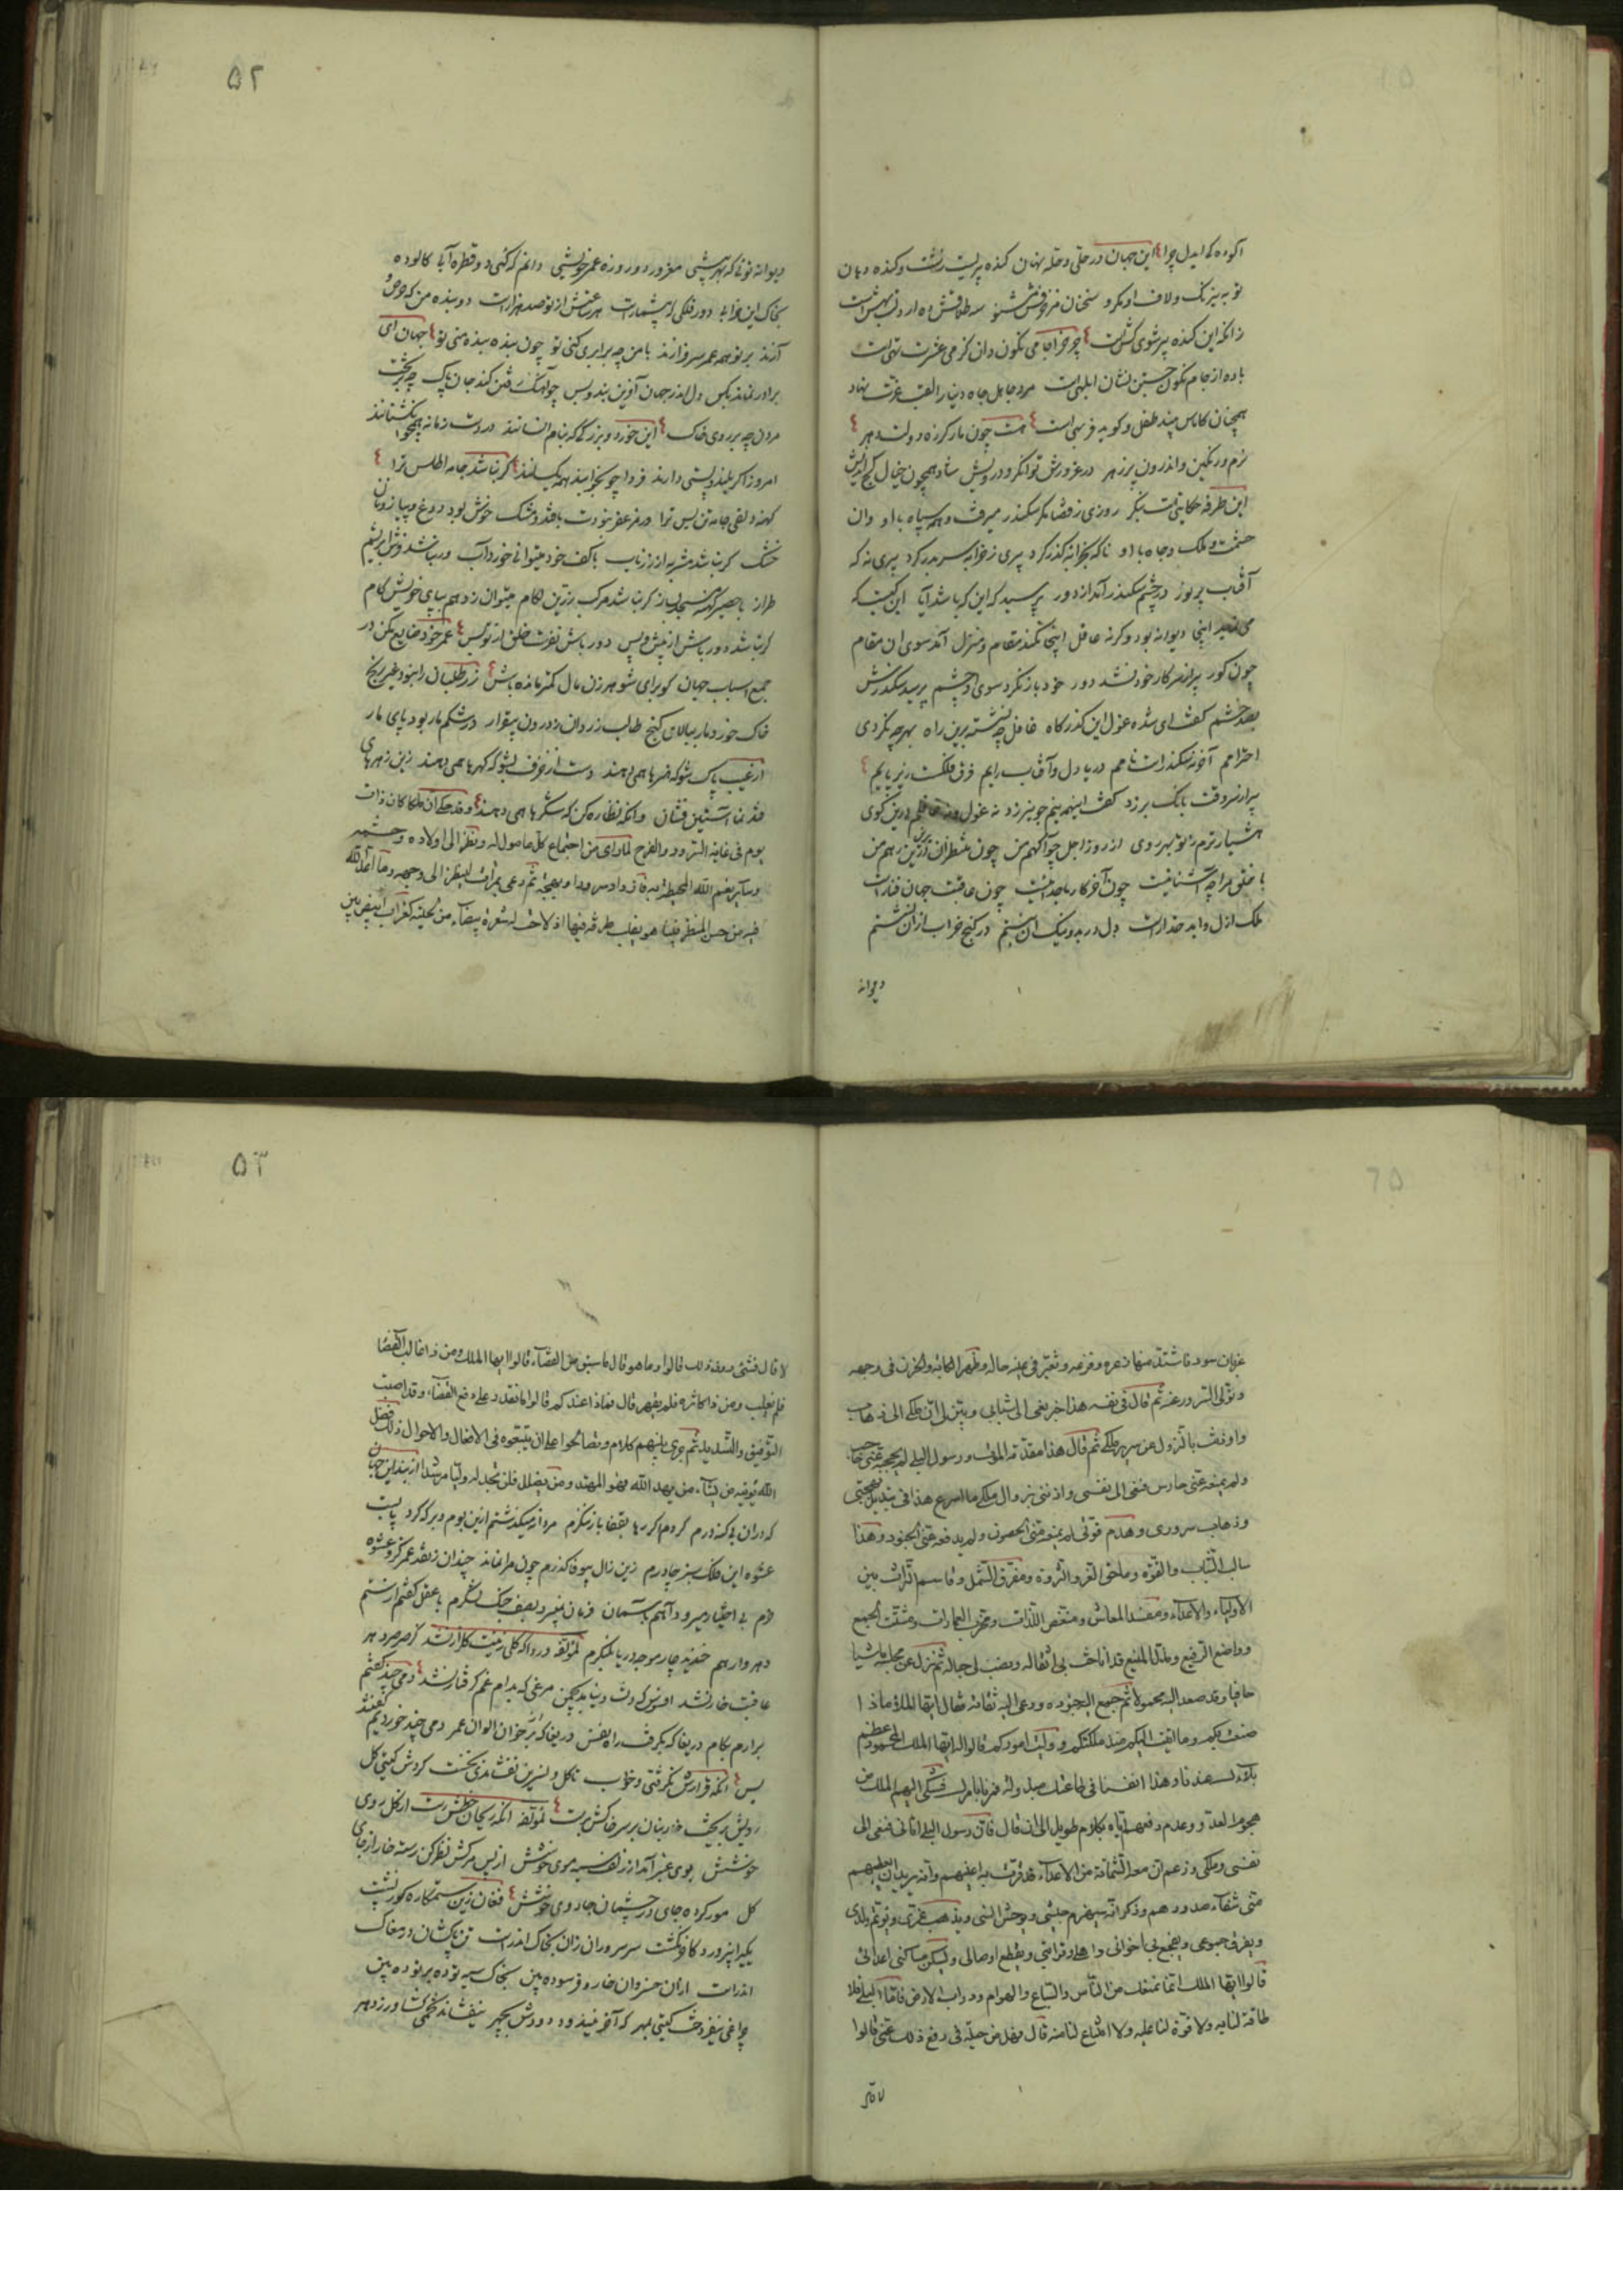 آلوده که ایدل چرا این جهان در حلی و حله نهان کنده پیریست زشت و کنده دهان
تو به نیرنگ و لاف او مگرو سخنان مزوّرش مشنو
زانکه این کنده پیر شوی کش است چرخ را جامی نگون دان کز می عشرت تهی است
باده از جام نگون جستن نشان ابلهی است مرد جاهل جاه دنیا را لقب عزت نهاد
همچنان کاماس بیند طفل و گوید فربهی است هست چون مار گرزه دولت دهر
نرم و رنگین و اندرون پر زهر در غرورش توانگر و درویش شاد همچون خیال گنج اندیش
این طرفه حکایت است بنگر روزی ز قضا مگر سکندر میرفت و همه سپاه با او وان
حشمت و ملک و جاه با او ناگه بخرابه گذر کرد پیری ز خرابه سر بدر کرد پیری نه که
آفتاب پر نور در چشم سکندر آمد از دور پرسید که این که باشد آیا این کیست که
می‌نماید اینجا دیوانه بود وگرنه عاقل اینجا نکند مقام و منزل آمد سوی آن مقام
چون گور پیر از سر کار خود نشد دور خود باز نکرد سوی او چشم پرسید سکندرش
بصد خشم گفت ای شده غول این گذرگاه غافل چه نشسته برین راه بهر چه نکردی
احترامم آخر نه سکندرست نامم دریا دل و آفتاب رایم فرق فلکست زیر پایم
پیر از سر وقت بانگ برزد گفت اینهمه نیم جو نیرزد نه غول و نه غافلم درین کوی
هشیارترم ز تو بهر روی از روز اجل چو آگهم من چون منتظران برین رهم من
با خلق مرا چه آشنائیست چون آخر کار با جدائیست چون عاقبت جهان فناراست
ملک ازل و ابد خداراست دل در بد و نیک آن نبستم در کنج خراب ازان نشستم
دیوانه
۵۲
دیوانه توئی که بهر پیشی مغرور دو روزه عمر خویشی دانم که کنی دو قطره آبا کالوده
بخاک این خرابه دور فلکی که بیشمارست هر ساعتش از تو صد هزارست دو بنده من که حرص و
آزند بر تو همه عمر سرفرازند با من چه برابری کنی تو چون بنده بنده منی تو جهان ای
برادر نماند بکس دل اندر جهان آفرین بند و بس چو آهنگ رفتن کند جان پاک چه بر تخت
مردن چه بر روی خاک این خورد و بزرگی که بنام انسانند در دست زمانه همچو انگشتانند
امروز اگر بلند و پستی دارند فردا چو بخوابند همه یکسانند گر نباشد جامه اطلس ترا
کهنه دلقی جامه تن بس ترا ورمزعفر نبودت با قند و مشک خوش بود دوغ و پیاز و نان
خشک گر نباشد مشربه از زر ناب با کف خود میتوانی خورد آب ور نباشد فرش ابریشم
طراز با حصیر کهنه مسجد بساز گر نباشد مرکب زرین لگام میتوان زد هم بپای خویش گام
گر نباشد دورباش از پیش و پس دور باش نفرت خلق از تو بس عمر خود ضایع مکن در
جمع اسباب جهان گو برای شوهر زن مال کمتر مانده باش زر طلبان را نبود غیر رنج
خاک خورد مار ببالای گنج طالب زر دان ز درون بیقرار در شکم مار بود پای مار
از غیب پاک شو که هنرها همی دهند دست از خزف بشو که گهرها همی دهند زین زهرهای
قند نما آستین فشان وانگه نظاره کن که شکرها همی دهند وقد حکی ان ملکا کان ذات
یوم فی غایة السرور والفرح لما رای من اجتماع کل ما مول له ونظر الی اولاده وحشمه
وسایر نعم الله المحیطة به فازداد سرورا وبهجة ثم دعی بمرآة لینظر الی وجهه وما اعد الله
فیه من حسن المنظر فبینا هو یقلب طرفه فیها اذ لاحت له شعرة بیضاء من لحیته کغراب ابیض بین
غربان سود فاشتد منها ذعره وفزعه وتغیر فی عینه حاله وظهر الکابة والحزن فی وجهه
وتولی السرور عنه ثم قال فی نفسه هذا خبر نعی الی شبابی وبین لی ان ملکی الی ذهاب
واوذنت بالنزول عن سریر ملکی ثم قال هذا مقدمة الموت ورسول البلی لم یحجبه عنی حاجب
ولم یمنعه عنی حارس فنعی الی نفسی واذننی بزوال ملکی ما اسرع هذا فی تبدیل بهجتی
وذهاب سروری وهدم قوتی لم یمنعه منی الحصون ولم یدفعه عنی الجنود وهذا
سالب الشباب والقوة وماحق العز والثروة ومفرق الشمل وقاسم التراث بین
الاولیاء والاعداء ومفسد المعاش ومنغص اللذات ومخرب العمارات ومشتت الجمع
وواضع الرفیع ومذل المنیع قد اناخت بی اثقاله ونصب لی حباله ثم نزل عن مجلسه ماشیا
حافیا وقد صعد الیه محمولا ثم جمع الیه جنوده ودعی الیه ثقاته فقال ایها الملاء ماذا
صنعت بکم وما اتیت الیکم منذ ملکتکم وولیت امورکم قالوا له ایها الملک المحمود عظیم
بلاؤک عندنا وهذا انفسنا فی طاعتک مبذولة فمرنا بامرک فشکی الیهم الملک من
هجوم العدو وعدم دفعهم ایاه بکلام طویل الی ان قال فان رسول البلی اتانی فنعی الی
نفسی وملکی وزعم ان معه الشماتة من الاعداء قد قرت به اعینهم وانه یرید ان یعطیهم
منی شفاء صدورهم وذکر انه سیهزم جیشی ویوحش انسی ویذهب عزی ویوتم ولدی
ویفرق جموعی ویفجع بی اخوانی واهلی وقرابتی ویقطع اوصالی ویسکن مساکنی اعدائی
قالوا ایها الملک انما نمنعک من الناس والسباع والهوام ودواب الارض فاما البلی فلا
طاقة لنا به ولا قوة لنا علیه ولا امتناع لنا منه قال فهل من حیلة فی دفع ذلک عنی قالوا
لا قال
۵۳
لا قال فشئ دون ذلک قالوا وما هو قال ما سبق من القضاء قالوا ایها الملک ومن ذا غالب القضا
فلم یغلب ومن ذا کاثره فلم یقهر قال فماذا عندکم قالوا ما نقدر علی دفع القضاء وقد اصبت
التوفیق والتسدید ثم جری بینهم کلام ونصایح علی ان یتبعوه فی الافعال والاحوال ذلک فضل
الله یؤتیه من یشاء من یهد الله فهو المهتد ومن یضلل فلن تجد له ولیا مرشدا از بند این جهان
که دران بی گنه درم گردم اگر رها بقفا باز ننگرم مرد آن میکند شتم ازین بوم و بر که کرد پابست
عشوه این فلک سبز چادرم زین زال بیوفا گذرم چون مرا نماند چندان ز نقد عمر کزو عشوه
خرم بی اختیار میرود آهم بآسمان
عاقبت خار نشد افسوس که دست دنیا بدیدیم چمن مرغی که بدام غم گرفتار نشد دمی چند گفتم
برارم بکام دریغا که بگرفت راه نفس دریغا که بر خوان الوان عمر دمی چند خوردیم گفتند
بس آنکه قرارش نگرفتی و خواب تا گل و نسرین نفشاندی نخست گردش گیتی گل
رویش بریخت خار بنان بر سر خاکش برست لمؤلفه آنکه ریحان خطش رست از گل روی
خوشش بوی عنبر آمد از زلف سیه موی خوشش
گل مور کرده جای در چشمان جادوی خوشش فغان زین ستمکاره گوژ پشت
یکی را نپرورد کاخر نکشت سر سروران زان بخاک اندرست تن پاکشان در مغاک
اندرست ازان خسروان خار و فرسوده بین بخاک سیه توده بر توده بین
چراغی نیفروخت گیتی بمهر که آخر نیندود دودش بچهر نیفشاند تخمی کشاورز دهر